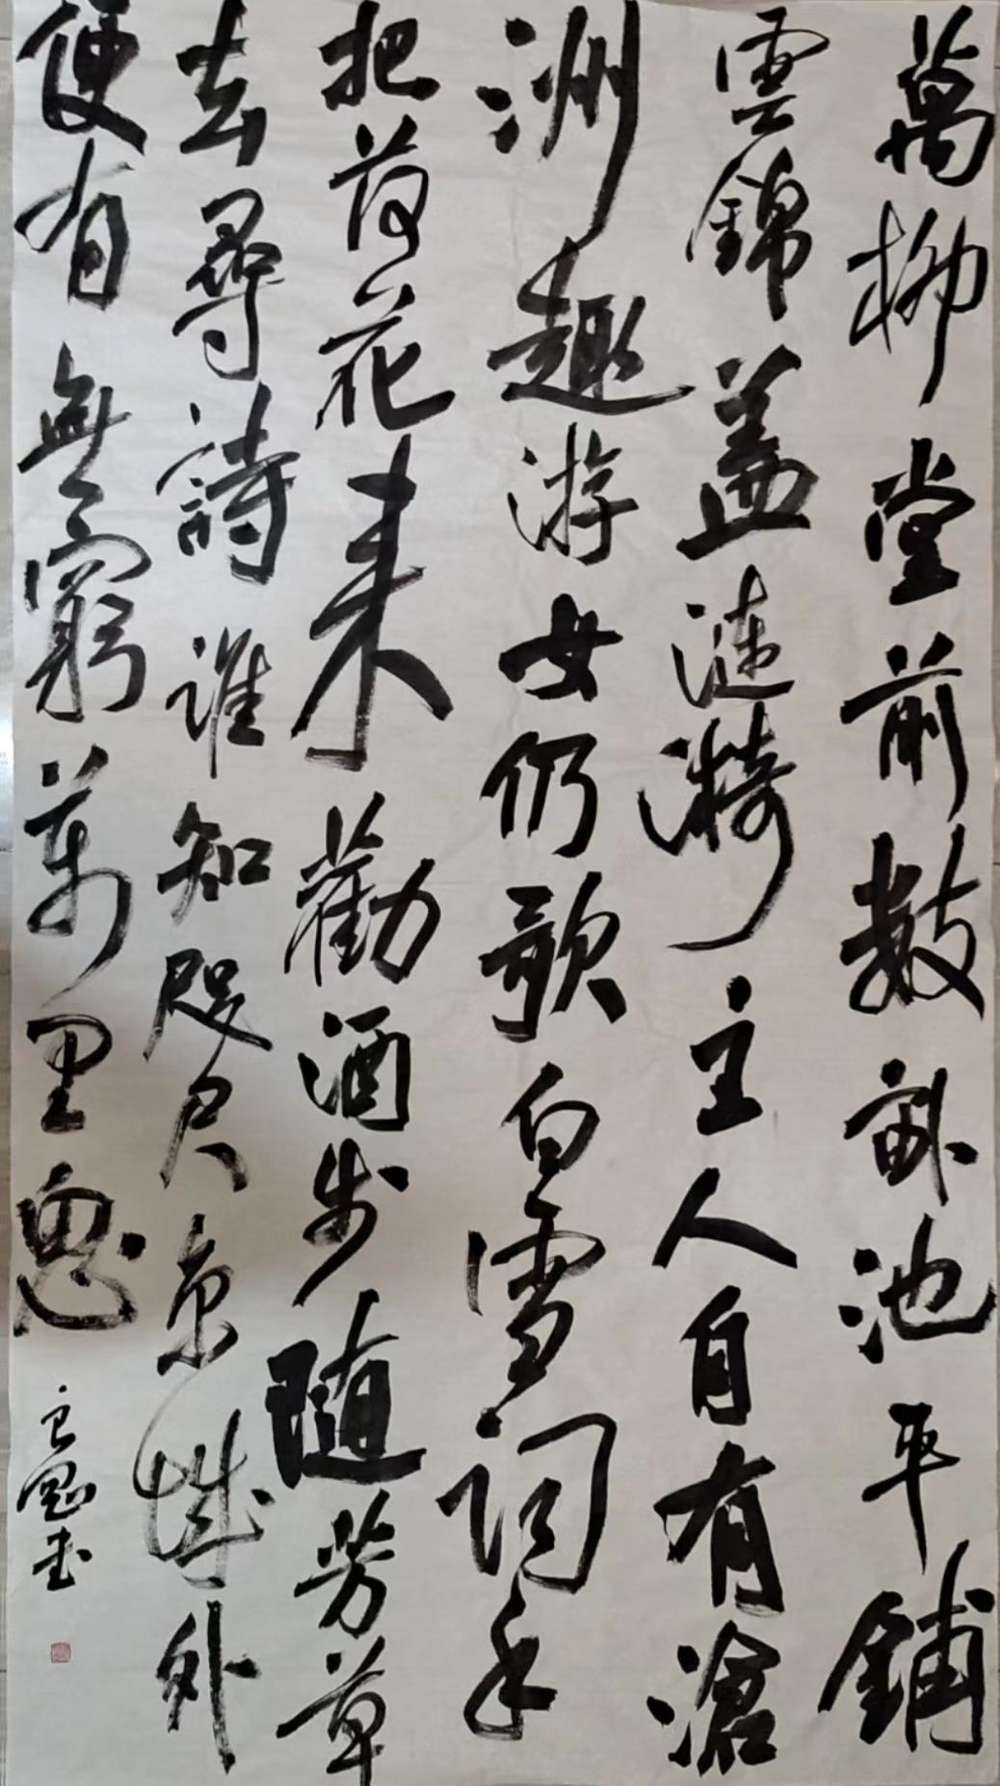 萬柳堂前數畝池平鋪
雲錦蓋漣漪主人自有滄
洲趣游女仍歌白雪詞手
把荷花來勸酒步隨芳草
去尋詩誰知咫尺京城外
便有無窮萬里思